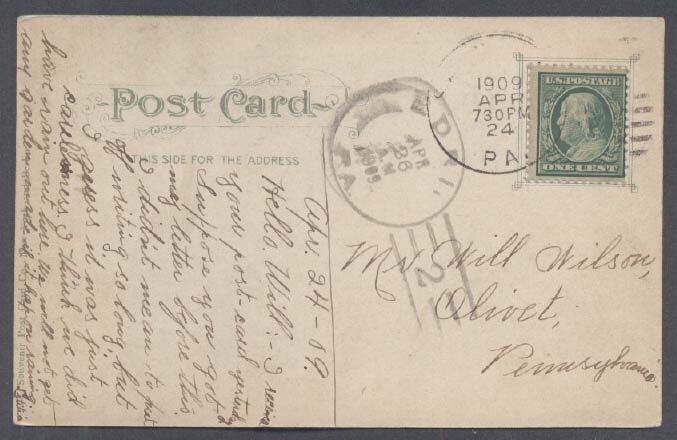 Post Card
THIS SIDE FOR THE ADDRESS
1909
APR
730 PM
24
PA.
U.S. POSTAGE
ONE CENT
APR
26
AM
1909
PA.
2
Apr. 24-09.
Hello Will:- I
your post-card
Suppose you got
my letter before this.
I didn't mean to put
off writing so long, but
I guess it was just
carelessness. I think we did
have rain out here. We will not get
any garden made if it keeps on raining
Mr Will Wilson,
Olivet,
Pennsylvania.